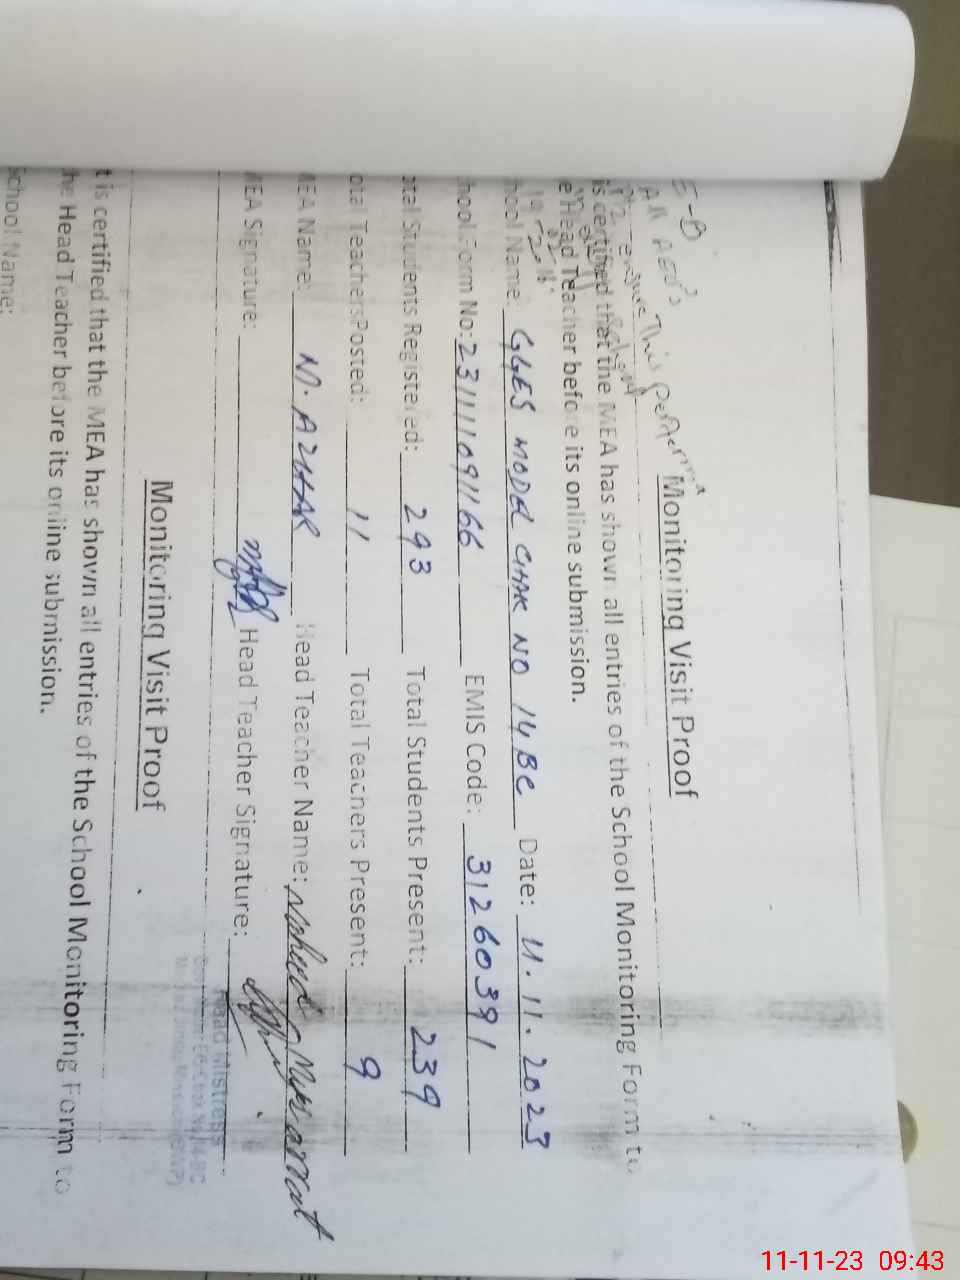 E-B
All AEO's
ensure This performa
Monitoring Visit Proof
is certified that the MEA has shown all entries of the School Monitoring Form to
e Head Teacher before its online submission.
hool Name: GGES MODEL CHAK NO 14 BC Date: 11.11.2023
hool Form No: 231111091166 EMIS Code: 31260391
otal Students Registered: 293 Total Students Present: 239
otal Teachers Posted: 11 Total Teachers Present: 9
MEA Name: M. AZHAR Head Teacher Name: Musarrat
MEA Signature: Head Teacher Signature:
Head Mistress
Monitoring Visit Proof
t is certified that the MEA has shown all entries of the School Monitoring Form to
he Head Teacher before its online submission.
School Name:
11-11-23 09:43